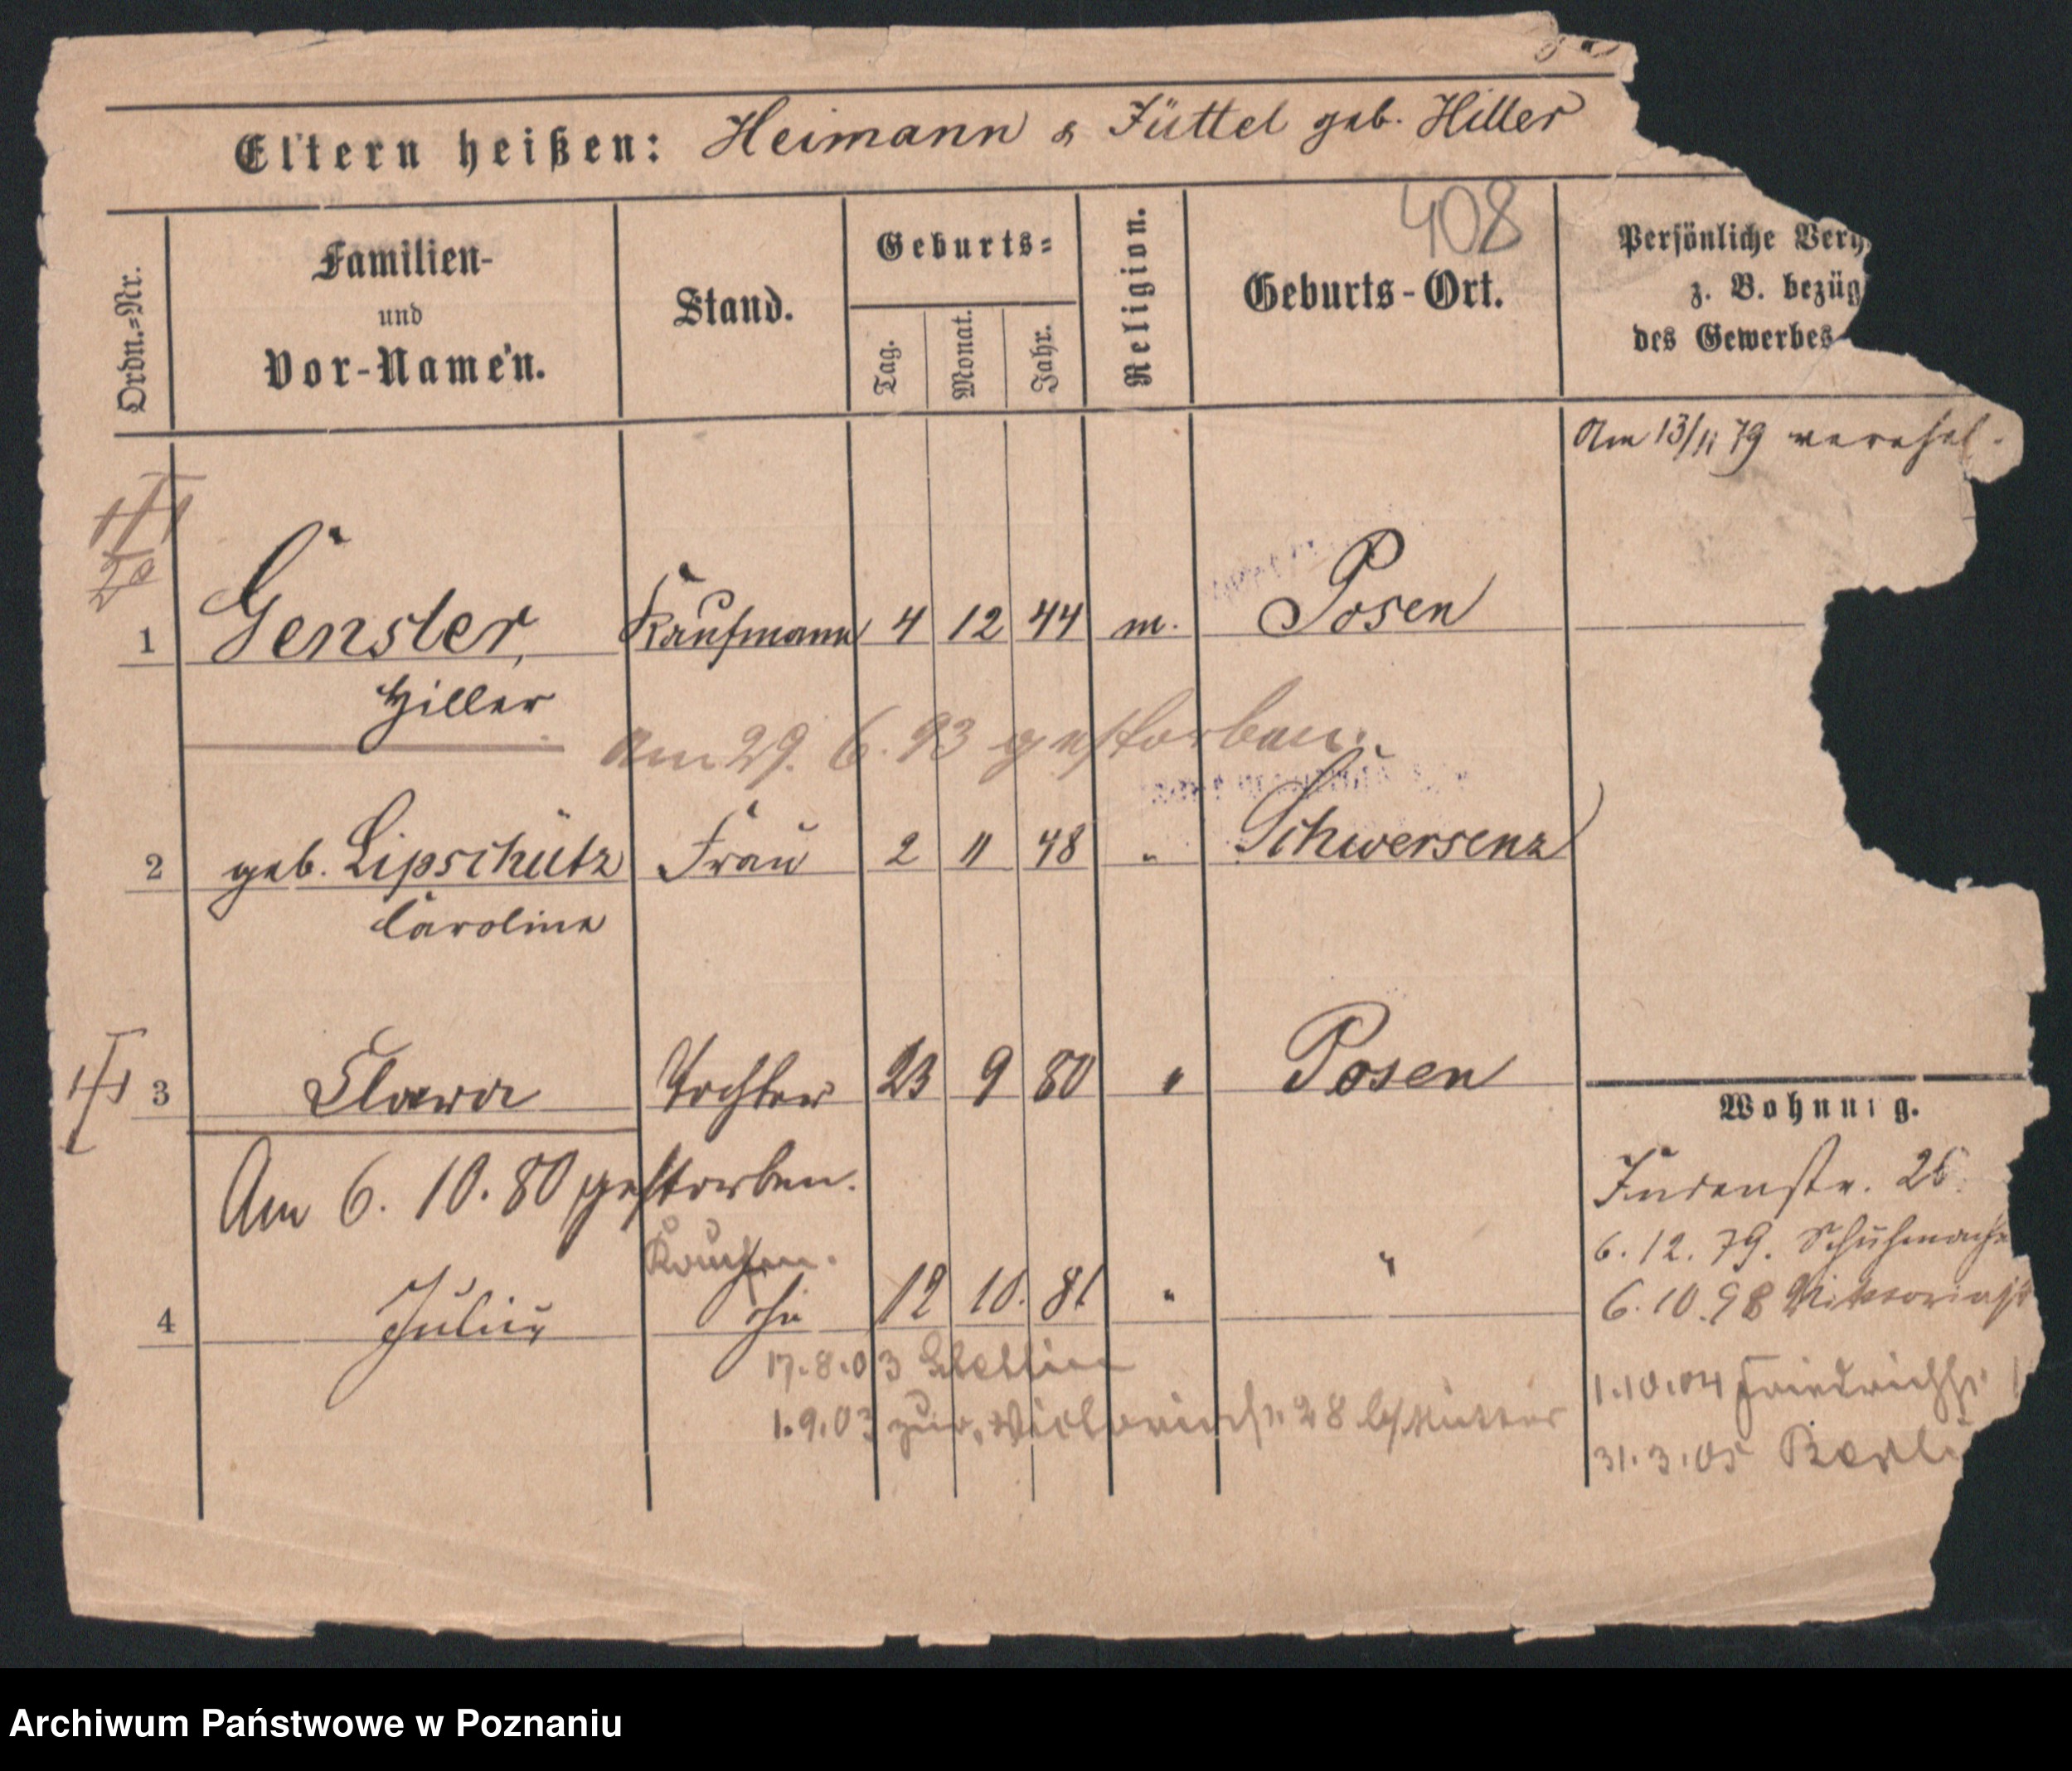 Eltern heißen: Heimann & Jüttel geb. Hiller
408
Ordn.=Nr.
Familien-
und
Vor-Namen.
Stand.
Geburts=
Tag.
Monat.
Jahr.
Religion.
Geburts-Ort.
Persönliche Verh
z. B. bezüg
des Gewerbes
Am 13/11 79 verehel.
1 Gensler, Kaufmann 4 12 44 m. Posen
Hiller
Am 29. 6. 93 gestorben.
2 geb. Lipschütz Frau 2 11 48 " Schwersenz
Caroline
3 Clara Tochter 23 9 80 " Posen
Am 6. 10. 80 gestorben.
Kaufm.
4 Julius Sohn 12 10. 81 " "
17.8.03 Stettin
1.9.03 zur. Victoriastr. 28 b/Mutter
Wohnung.
Judenstr. 26.
6. 12. 79. Schuhmache
6. 10. 98 Viktoriast
1.10.04 Friedrichstr
31.3.05 Berli
Archiwum Państwowe w Poznaniu